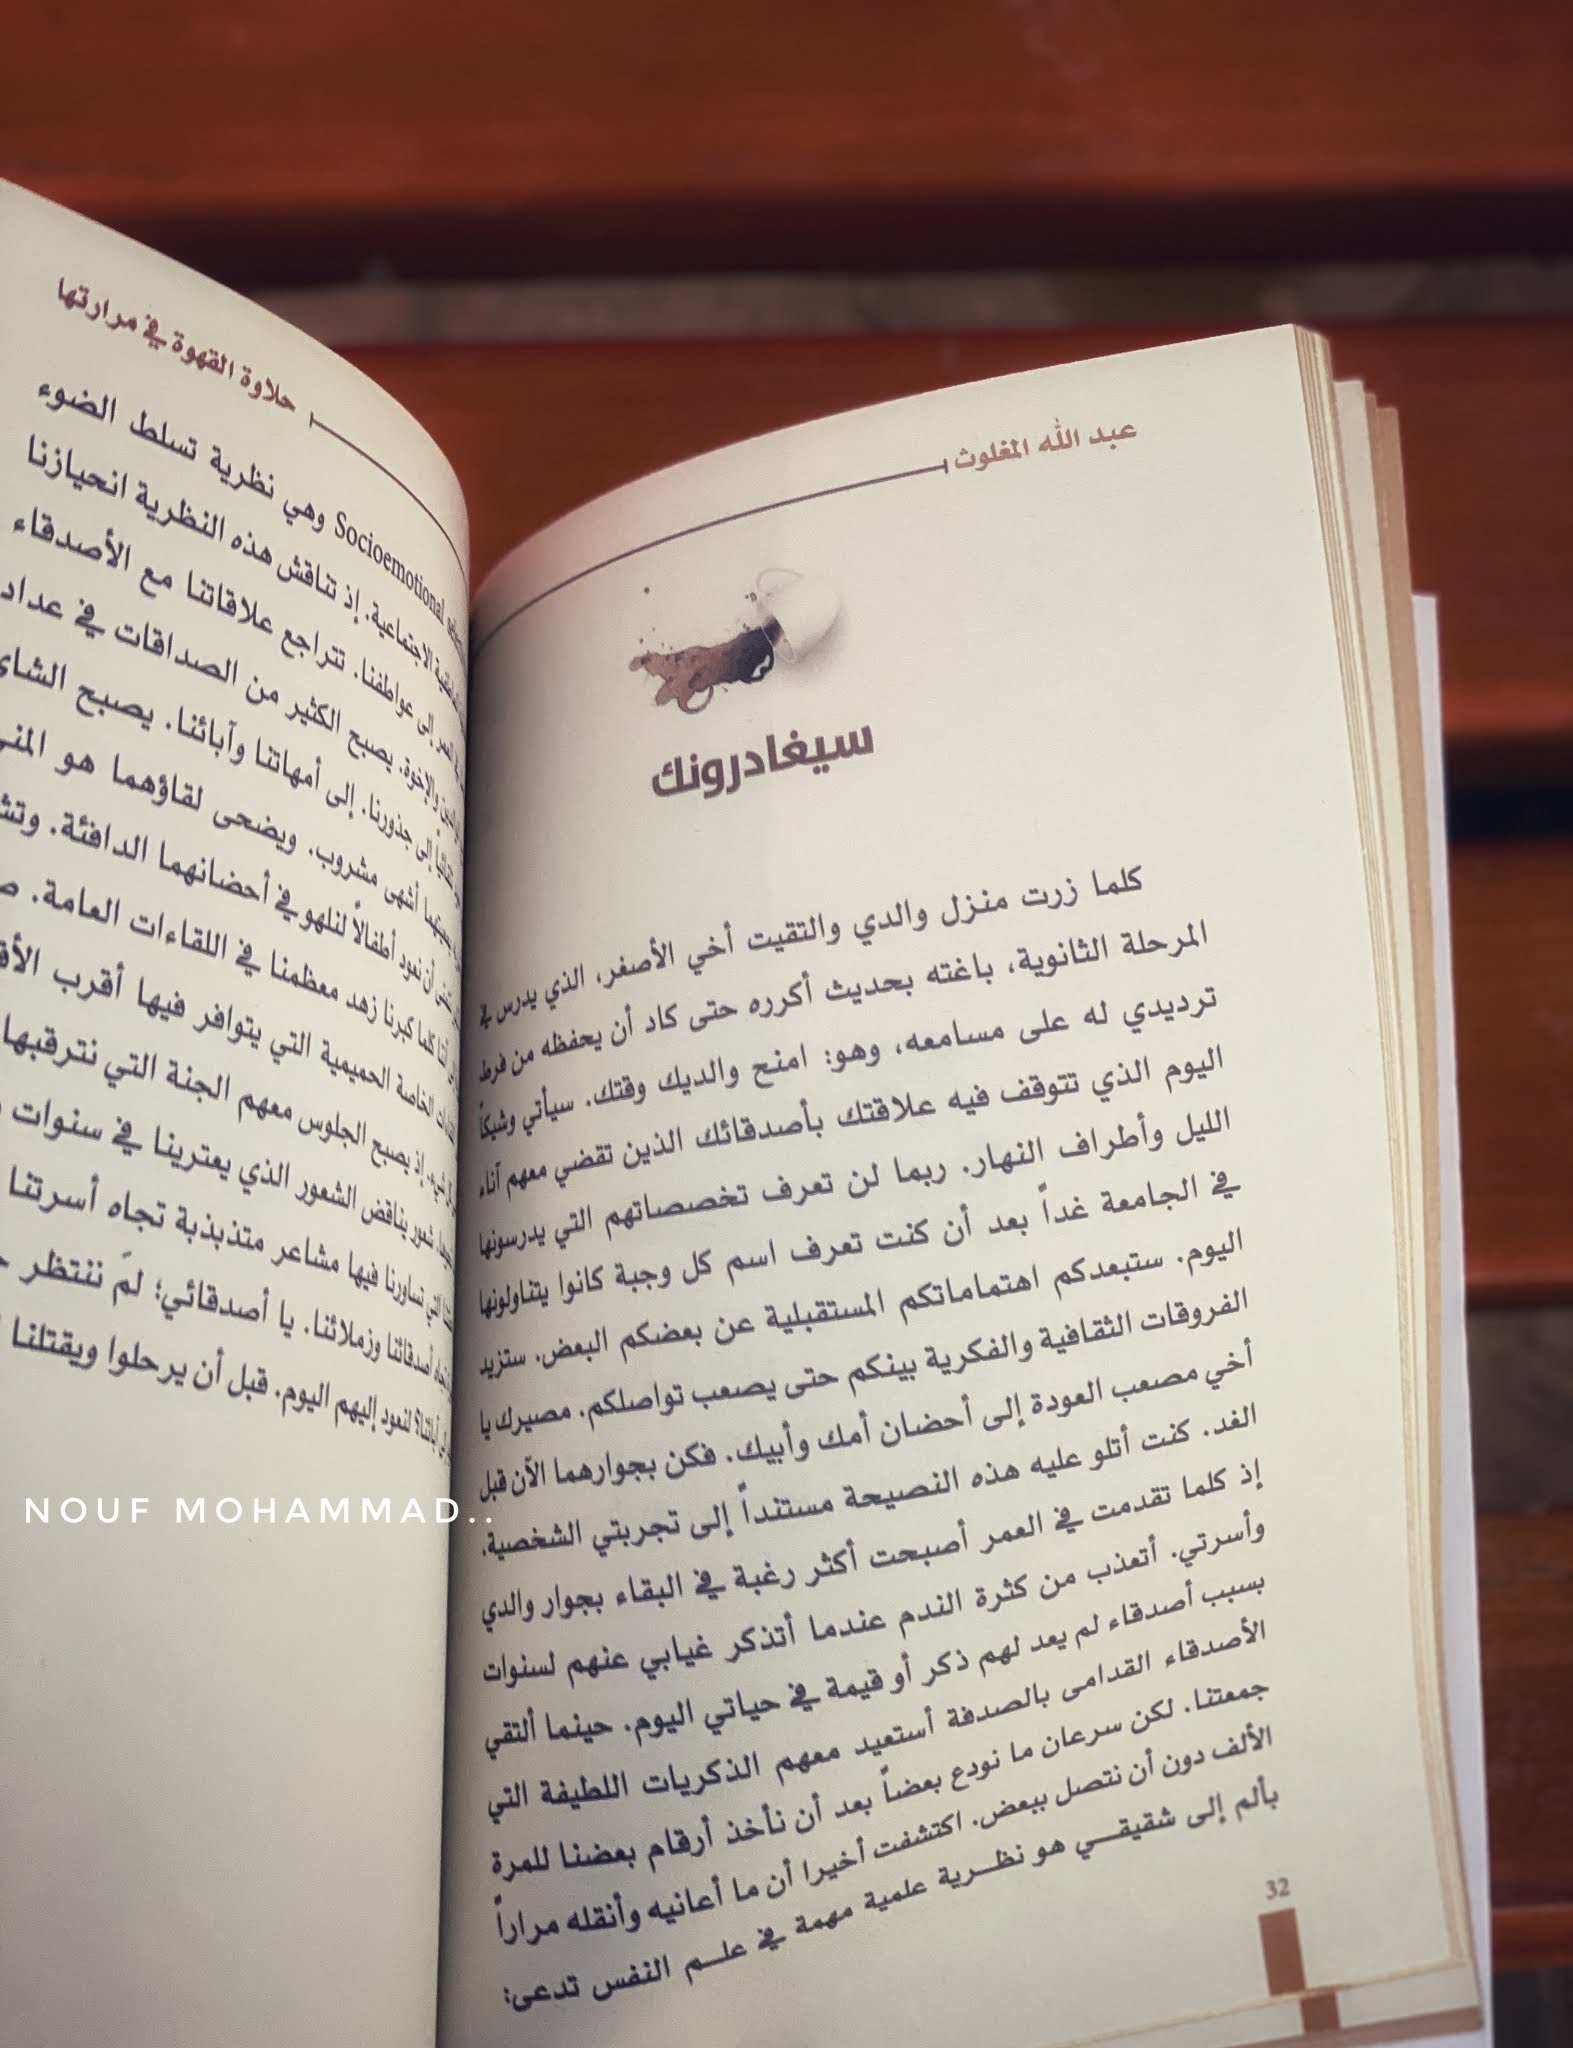 عبد الله المغلوث
سيغادرونك
كلما زرت منزل والدي والتقيت أخي الأصغر، الذي يدرس في
المرحلة الثانوية، باغته بحديث أكرره حتى كاد أن يحفظه من فرط
ترديدي له على مسامعه، وهو: امنح والديك وقتك. سيأتي وشيكاً
اليوم الذي تتوقف فيه علاقتك بأصدقائك الذين تقضي معهم آناء
الليل وأطراف النهار. ربما لن تعرف تخصصاتهم التي يدرسونها
في الجامعة غداً بعد أن كنت تعرف اسم كل وجبة كانوا يتناولونها
اليوم. ستبعدكم اهتماماتكم المستقبلية عن بعضكم البعض. ستزيد
الفروقات الثقافية والفكرية بينكم حتى يصعب تواصلكم. مصيرك يا
أخي مصعب العودة إلى أحضان أمك وأبيك. فكن بجوارهما الآن قبل
الغد. كنت أتلو عليه هذه النصيحة مستنداً إلى تجربتي الشخصية.
إذ كلما تقدمت في العمر أصبحت أكثر رغبة في البقاء بجوار والدي
وأسرتي. أتعذب من كثرة الندم عندما أتذكر غيابي عنهم لسنوات
بسبب أصدقاء لم يعد لهم ذكر أو قيمة في حياتي اليوم. حينما ألتقي
الأصدقاء القدامى بالصدفة أستعيد معهم الذكريات اللطيفة التي
جمعتنا. لكن سرعان ما نودع بعضاً بعد أن نأخذ أرقام بعضنا للمرة
الألف دون أن نتصل ببعض. اكتشفت أخيرا أن ما أعانيه وأنقله مراراً
بألم إلى شقيقي هو نظرية علمية مهمة في علم النفس تدعى:
32
حلاوة القهوة في مرارتها
Socioemotional وهي نظرية تسلط الضوء
الاجتماعية. إذ تناقش هذه النظرية انحيازنا
إلى عواطفنا. تتراجع علاقاتنا مع الأصدقاء
والإخوة. يصبح الكثير من الصداقات في عداد
إلى جذورنا. إلى أمهاتنا وآبائنا. يصبح
أشهى مشروب. ويضحى لقاؤهما هو
أن نعود أطفالاً لنلهو في أحضانهما الدافئة.
كلما كبرنا زهد معظمنا في اللقاءات العامة.
الخاصة الحميمية التي يتوافر فيها أقرب
إذ يصبح الجلوس معهم الجنة التي نترقبها
شعور يناقض الشعور الذي يعترينا في سنوات
التي تساورنا فيها مشاعر متذبذبة تجاه أسرتنا
أصدقائنا وزملائنا. يا أصدقائي؛ لمَ ننتظر
لنعود إليهم اليوم. قبل أن يرحلوا ويقتلنا
NOUF MOHAMMAD..